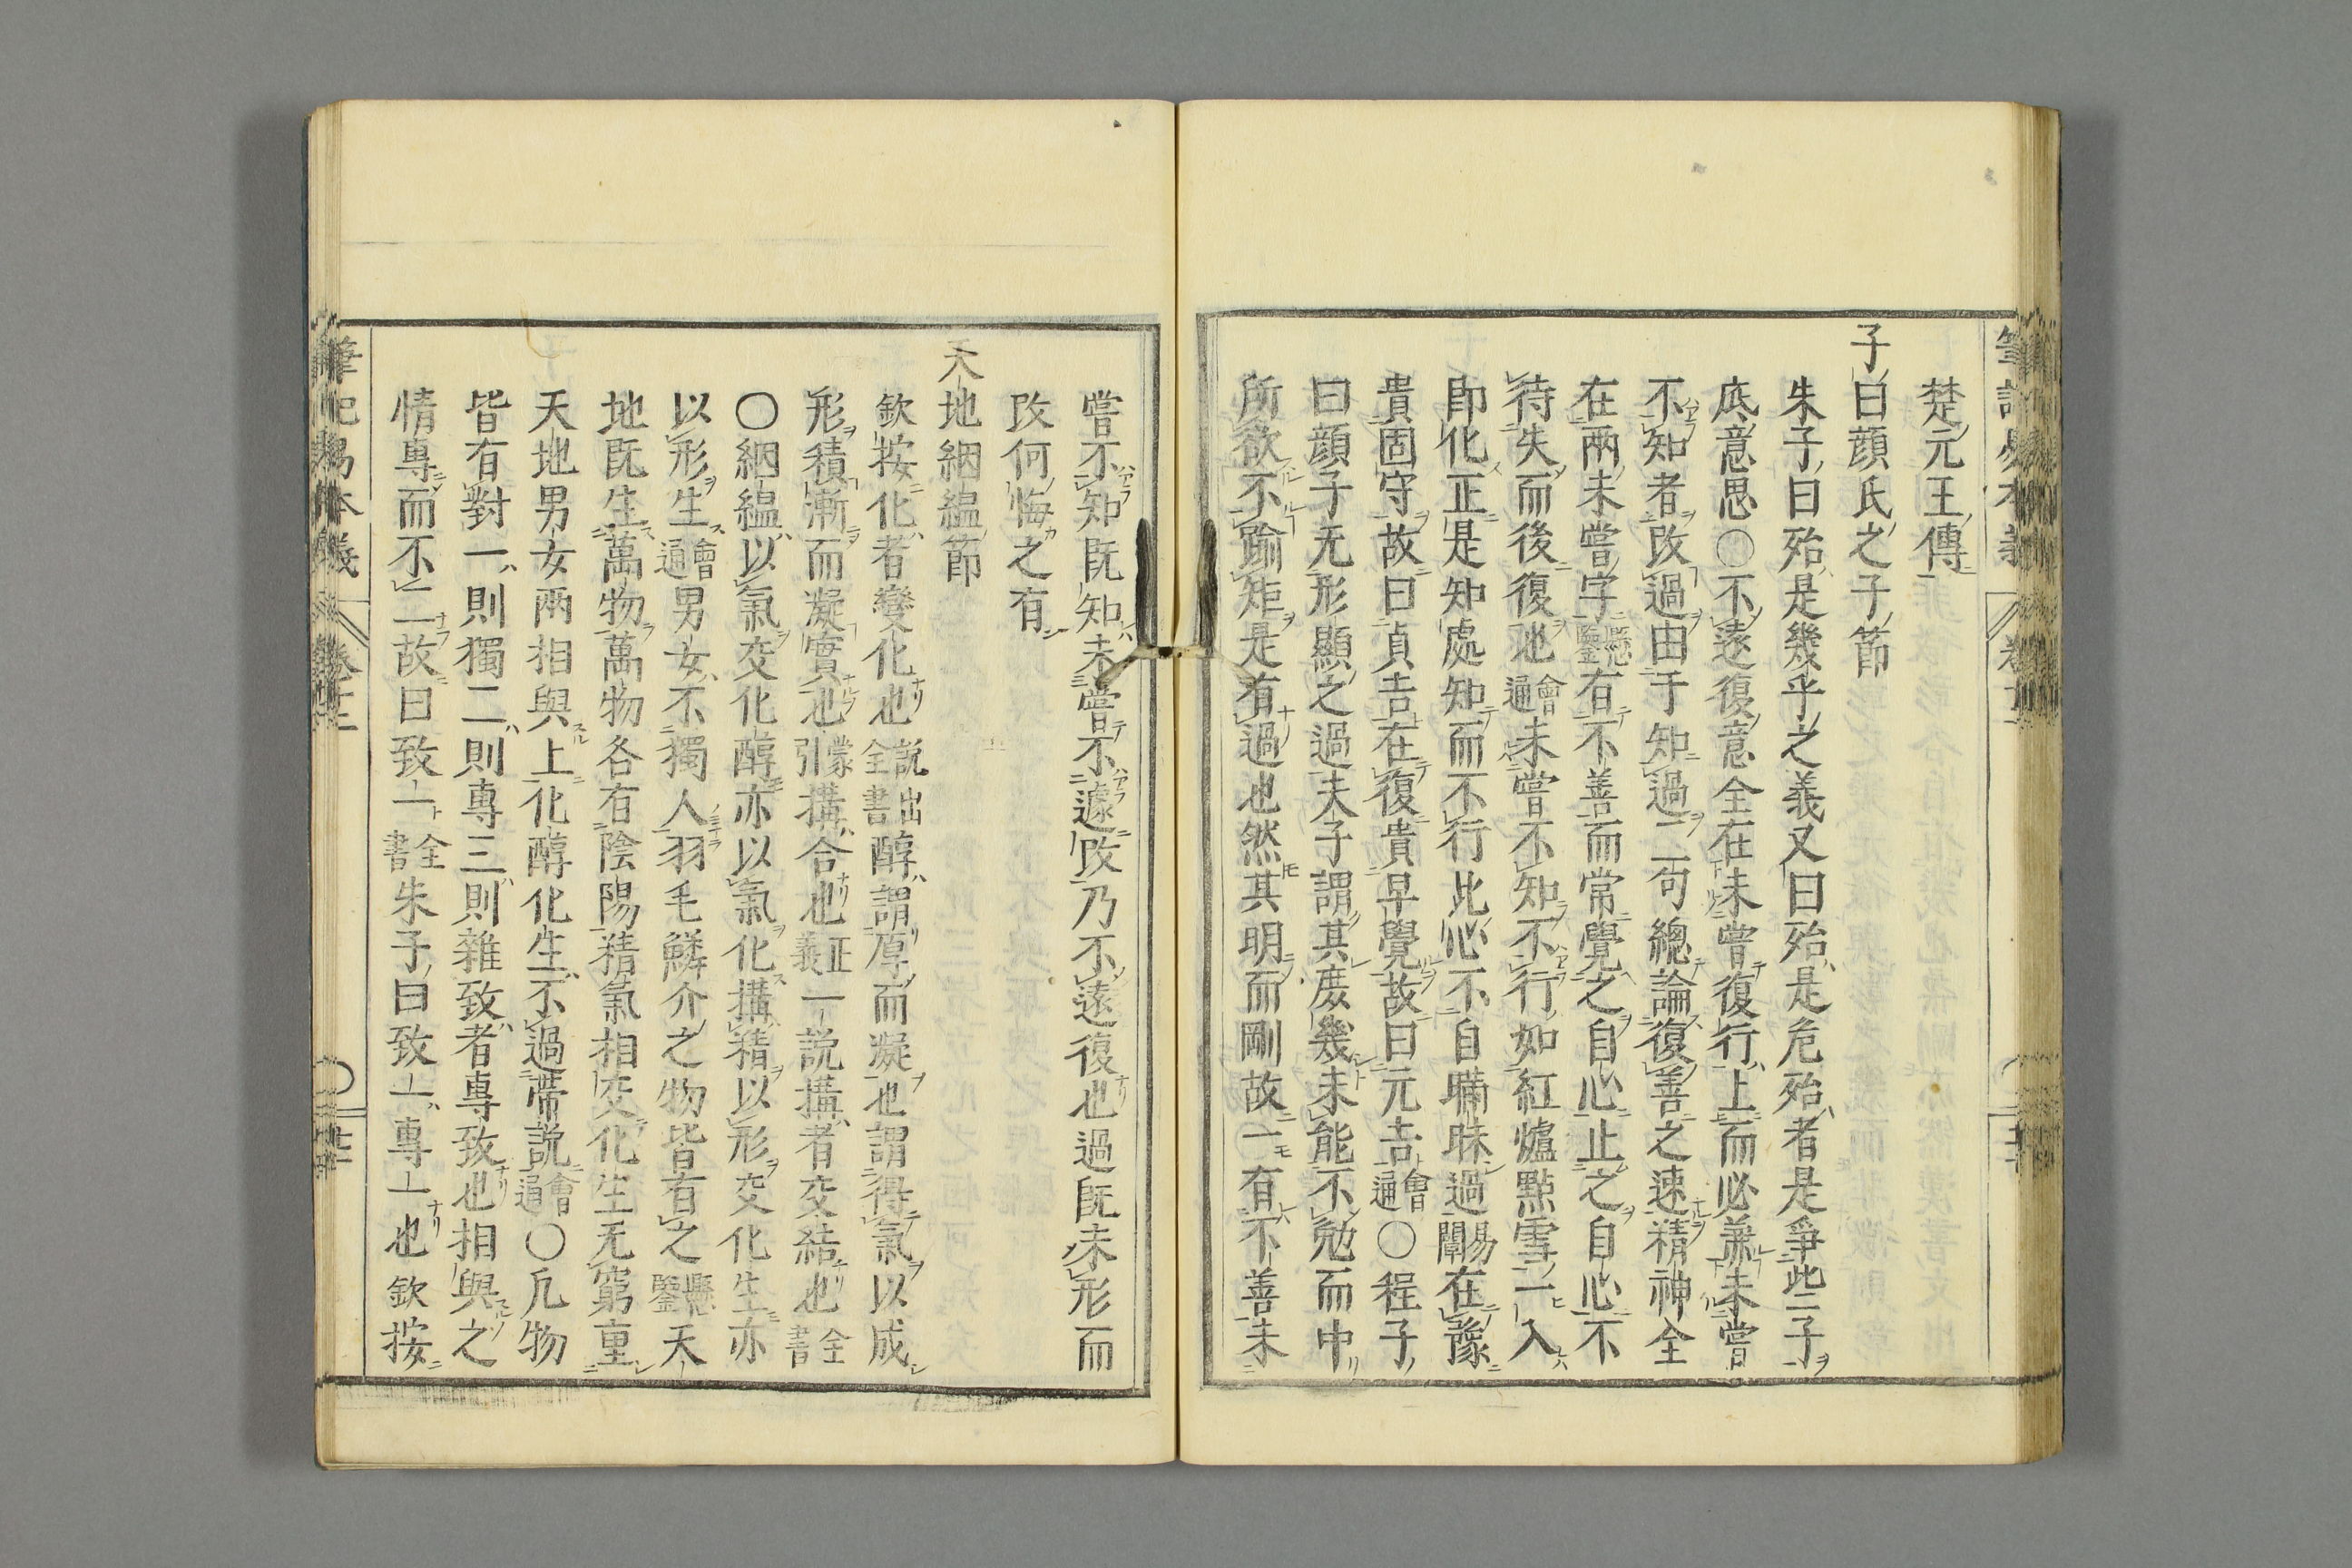 楚元王傳
子曰顔氏之子節
朱子曰殆是幾乎之義又曰殆是危殆者是爭些子
底意思○不遠復意全在未嘗復行上而必兼未嘗
不知者改過由于知過二句總論復善之速精神全
在兩未嘗字懸鑒有不善而常覺之自心止之自心不
待失而後復也會通未嘗不知不行如紅爐點雪一入
即化正是知處知而不行此心不自瞞昧過易闡在豫
貴固守故曰貞吉在復貴早覺故曰元吉會通○程子
曰顔子无形顯之過夫子謂其庶幾未能不勉而中
所欲不踰矩是有過也然其明而剛故一有不善未
嘗不知既知未嘗不遽改乃不遠復也過既未形而
改何悔之有
天地絪縕節
欽按化者變化也説出全書醇謂厚而凝也謂得氣以成
形積漸而凝實也蒙引搆合也正義一説搆者交結也全書
○絪縕以氣交化醇亦以氣化搆精以形交化生亦
以形生會通男女不獨人羽毛鱗介之物皆有之懸鑒天
地既生萬物萬物各有陰陽精氣相交化生无窮重
天地男女兩相與上化醇化生不過帶説會通○凡物
皆有對一則獨二則專三則雜致者專致也相與之
情專而不二故曰致一全書朱子曰致一專一也欽按